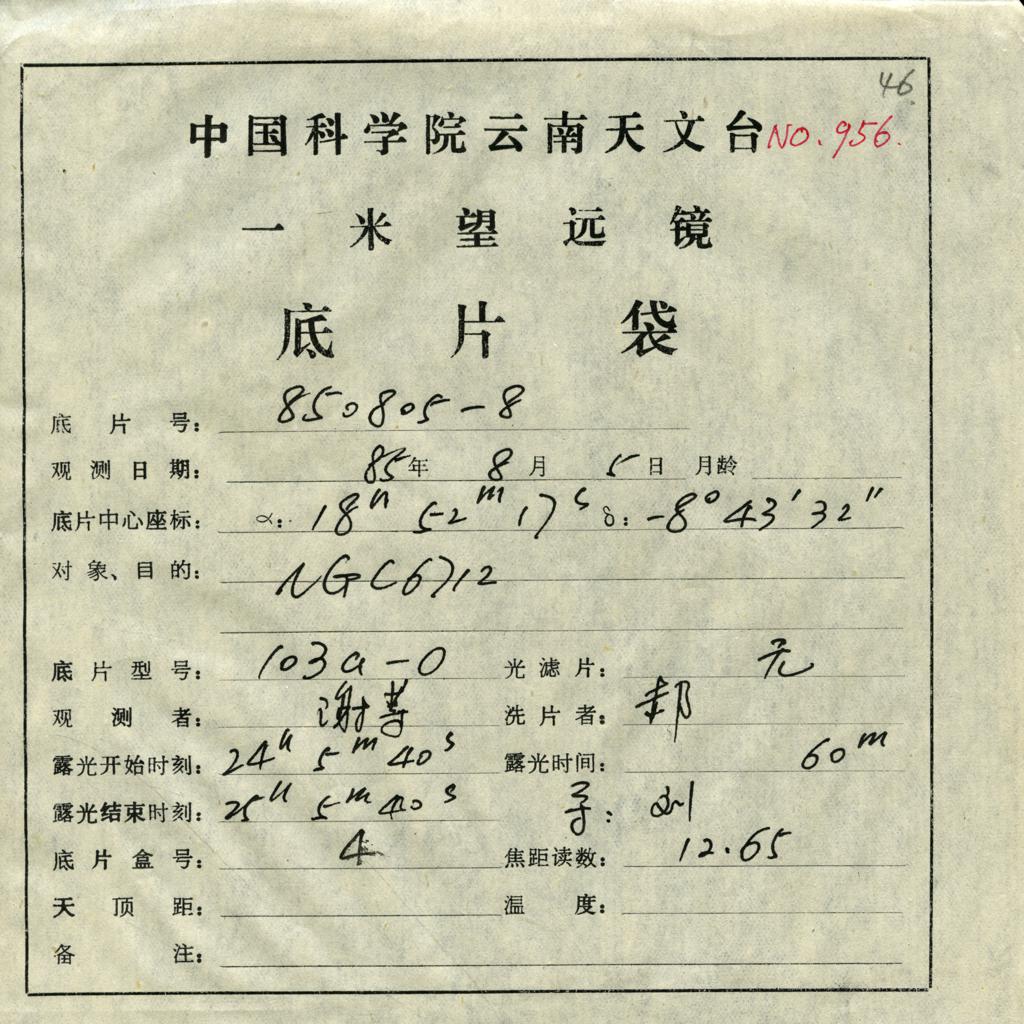 46
中国科学院云南天文台 NO.956.
一米望远镜
底片袋
底片号: 850805-8
观测日期: 85年 8月 5日 月龄
底片中心座标: α: 18h 52m 17s δ: -8° 43′ 32″
对象、目的: NGC6712
底片型号: 103a-O 光滤片: 无
观测者: 谢 洗片者:
露光开始时刻: 24h 5m 40s 露光时间: 60m
露光结束时刻: 25h 5m 40s 导: 刘
底片盒号: 4 焦距读数: 12.65
天顶距: 温度:
备注: